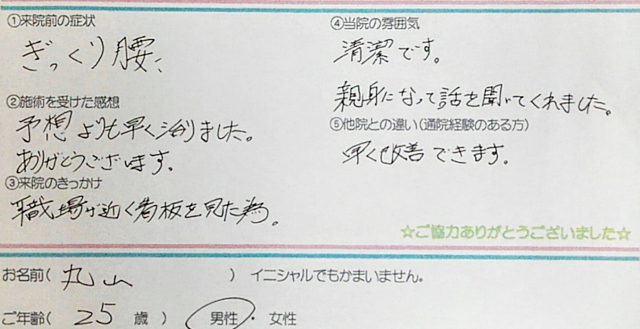 ①来院前の症状
ぎっくり腰
②施術を受けた感想
予想よりも早く治りました。
ありがとうございます。
③来院のきっかけ
職場が近く看板を見た為。
④当院の雰囲気
清潔です。
親身になって話を聞いてくれました。
⑤他院との違い(通院経験のある方)
早く改善できます。
☆ご協力ありがとうございました☆
お名前( 丸山 ) イニシャルでもかまいません。
ご年齢( 25 歳 ) 男性・女性